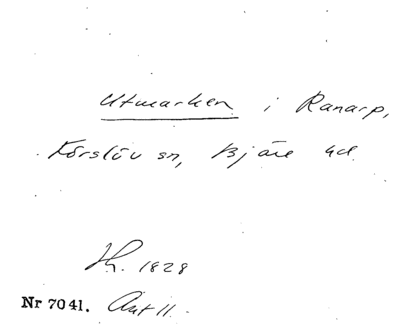 Utmarken i Ranarp,
Förslöv sn, Bjäre hd
Th. 1828
Nr 7041. Akt 11.